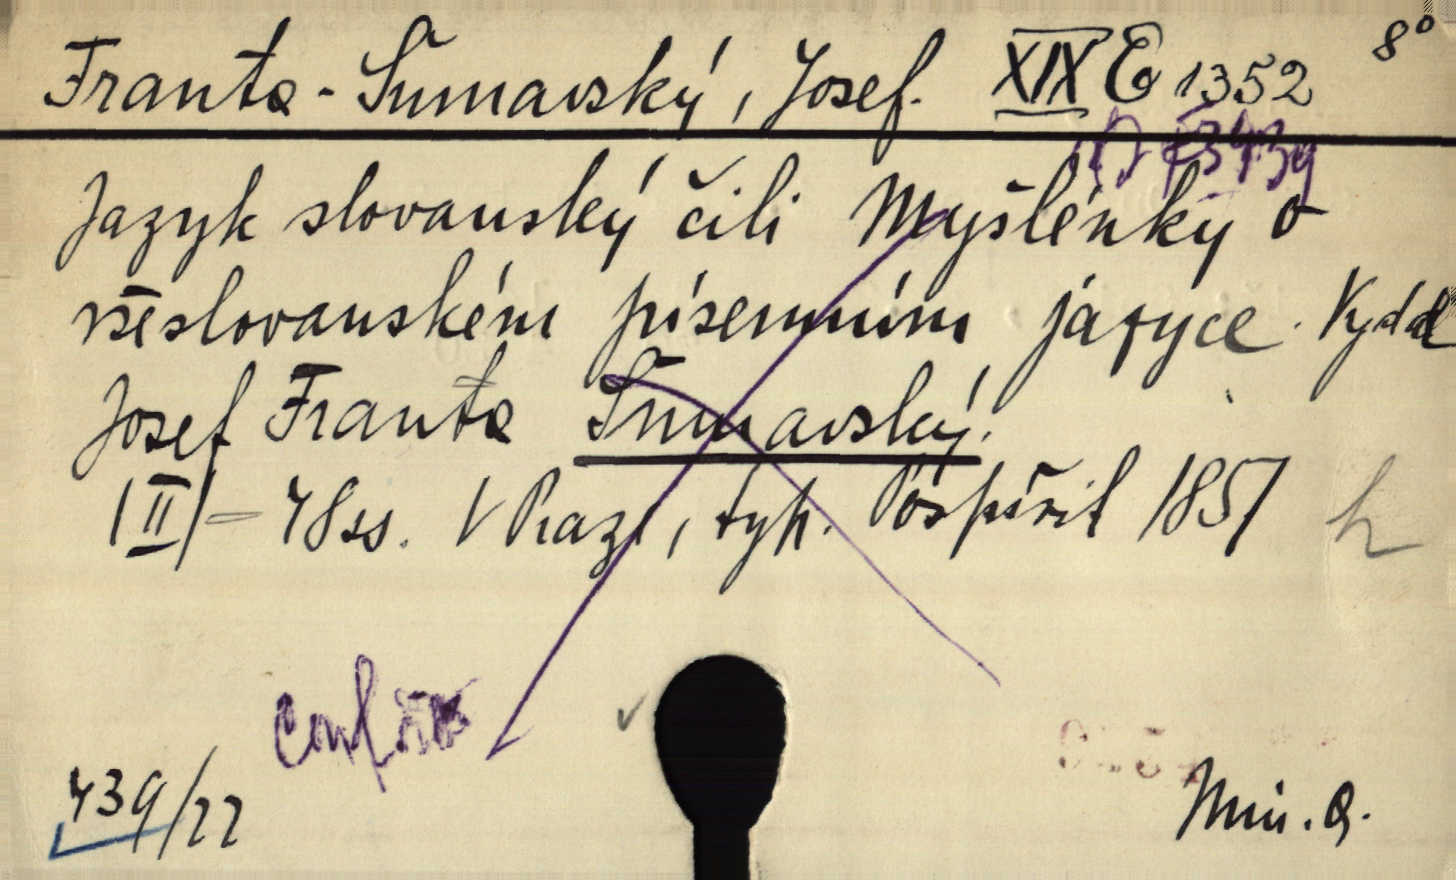 Franta-Šumavský, Josef. XIX E 1352 8°
Jazyk slovanský čili Myšlénky o
všeslovanském písemním jázyce. Vydal
Josef Franta Šumavský.
|II|-48ss. V Praze, typ. Pospíšil 1851
h
439/22
Min. Q.